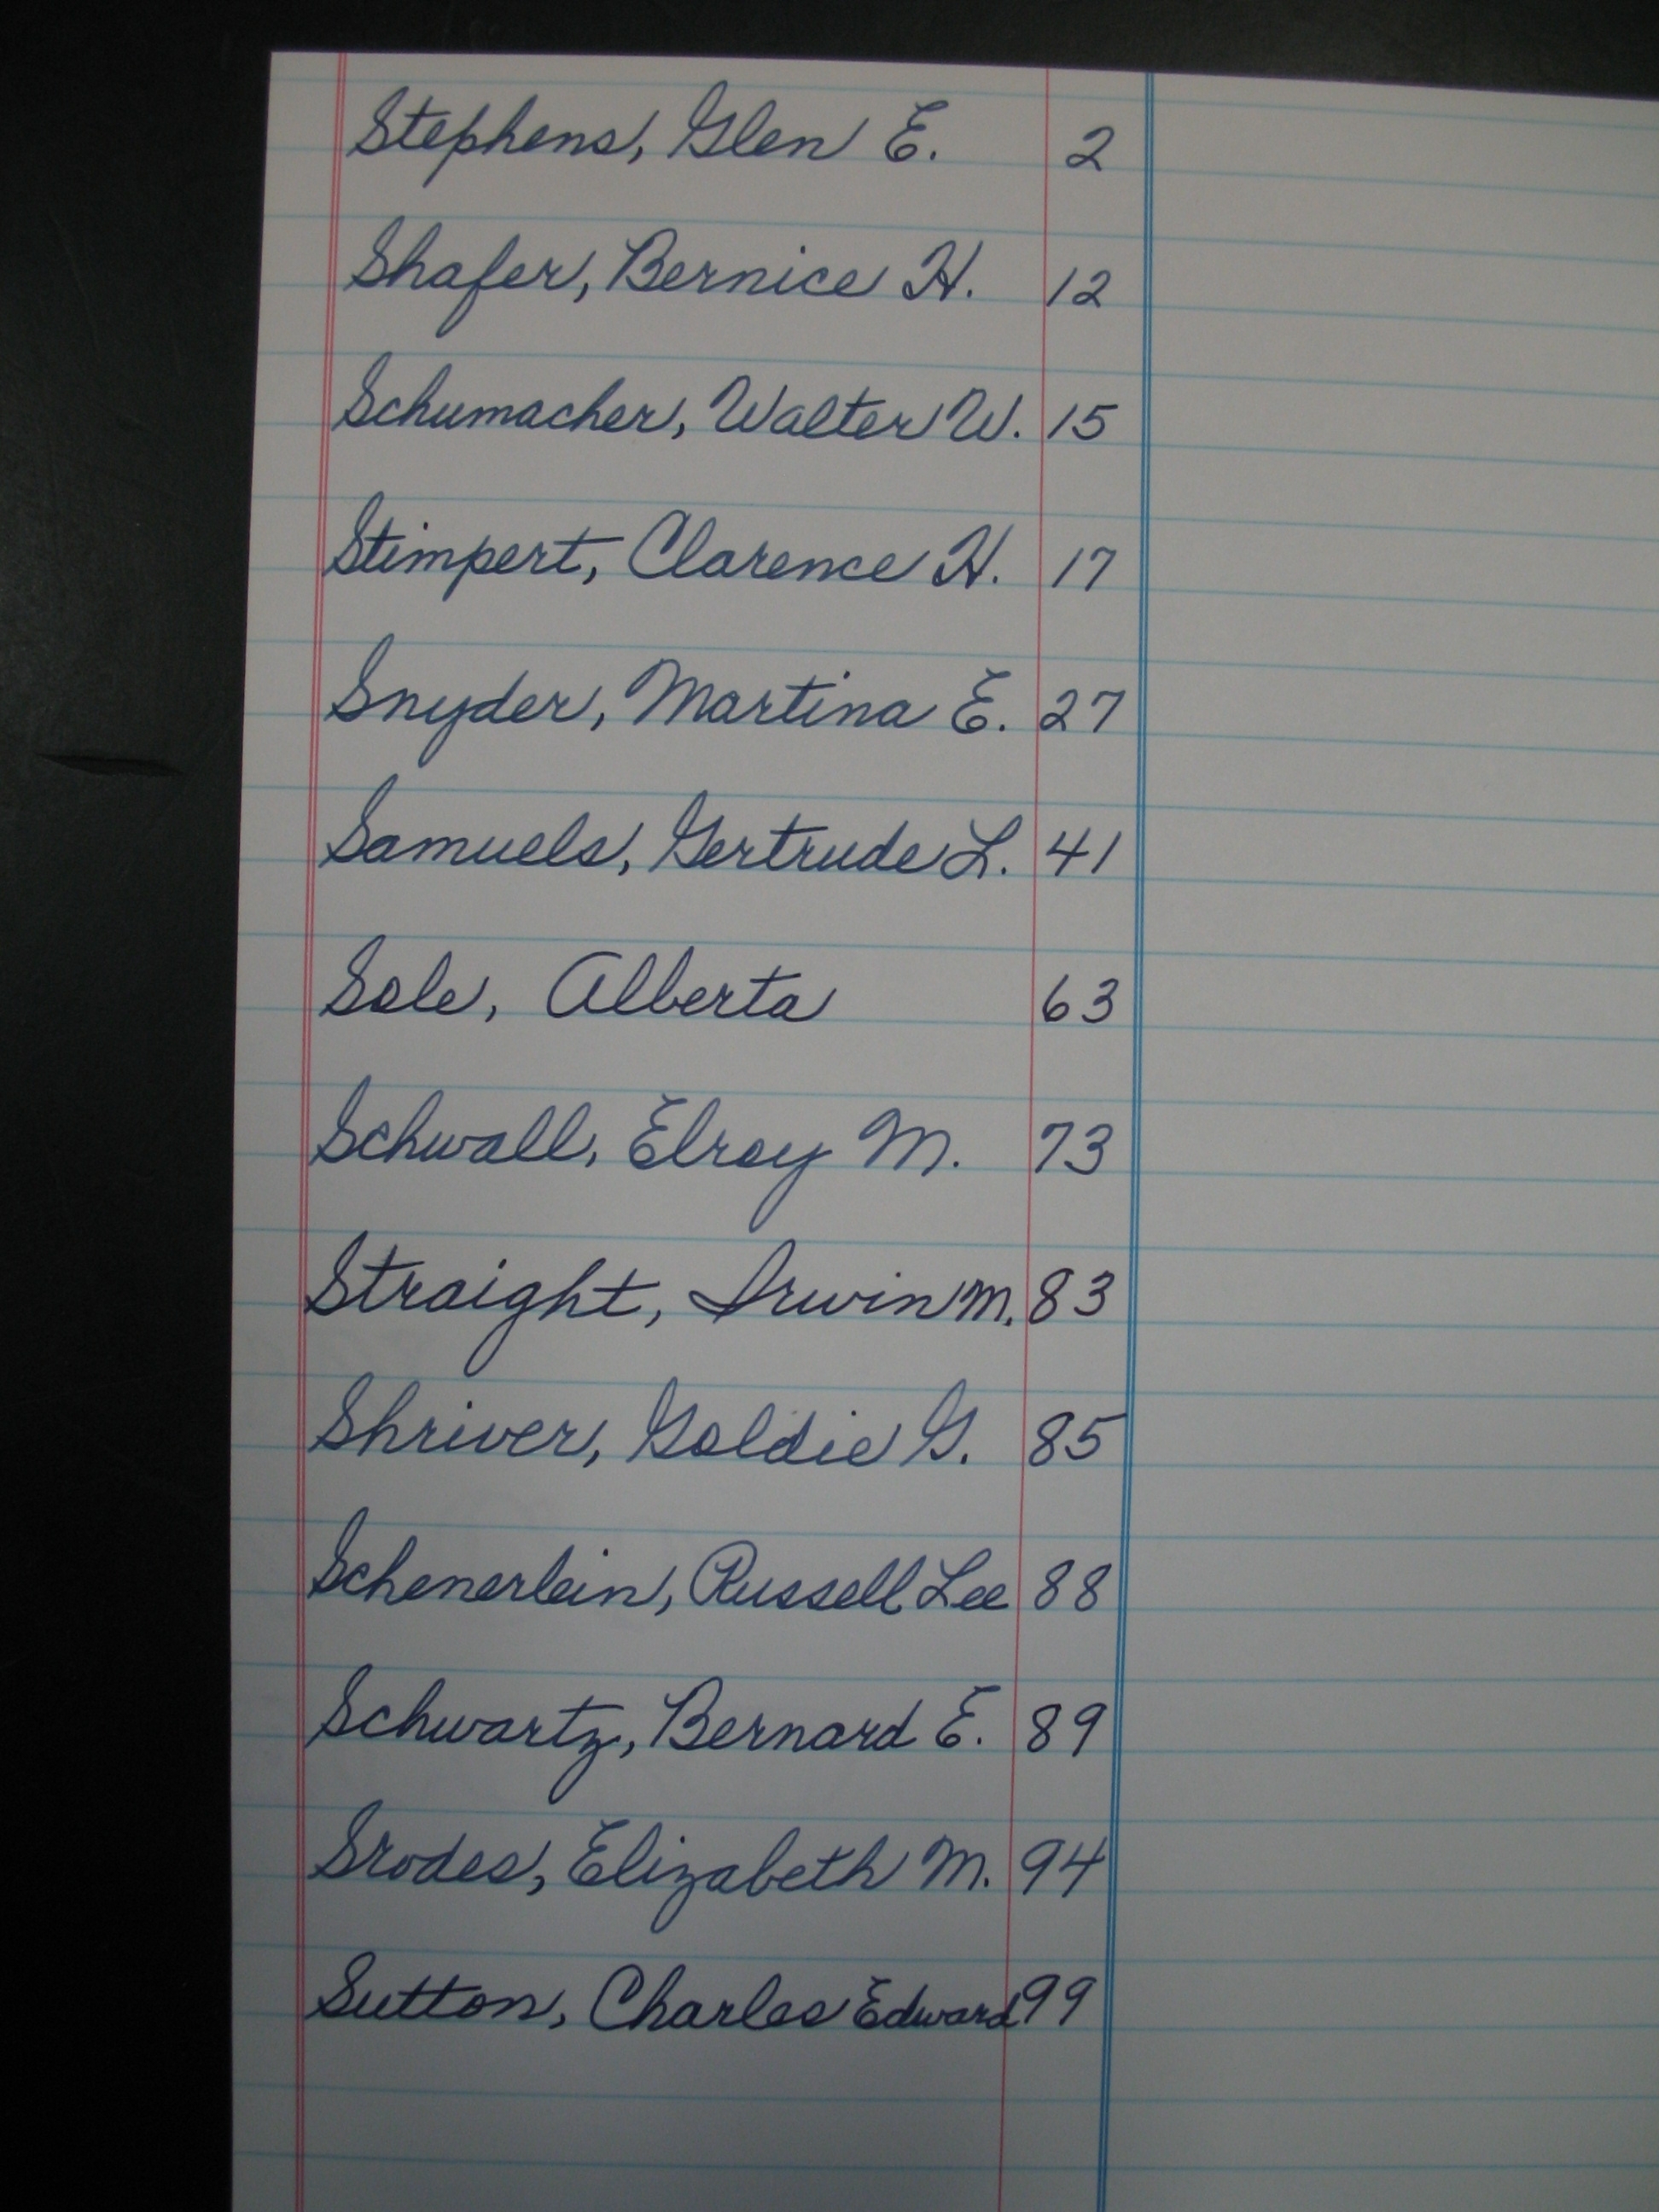 Stephens, Glen E. 2
Shafer, Bernice H. 12
Schumacher, Walter W. 15
Stimpert, Clarence H. 17
Snyder, Martina E. 27
Samuels, Gertrude L. 41
Sole, Alberta 63
Schwall, Elroy M. 73
Straight, Irwin M. 83
Shriver, Goldie G. 85
Schenerlein, Russell Lee 88
Schwartz, Bernard E. 89
Srodes, Elizabeth M. 94
Sutton, Charles Edward 99